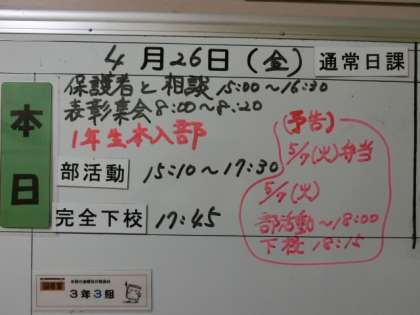 4月26日(金) 通常日課
本日
保護者と相談 15:00~16:30
表彰集会 8:00~8:20
1年生本入部
部活動 15:10~17:30
完全下校 17:45
(予告)
5/7(火)弁当
5/7(火)
部活動~18:00
下校 18:15
3年3組